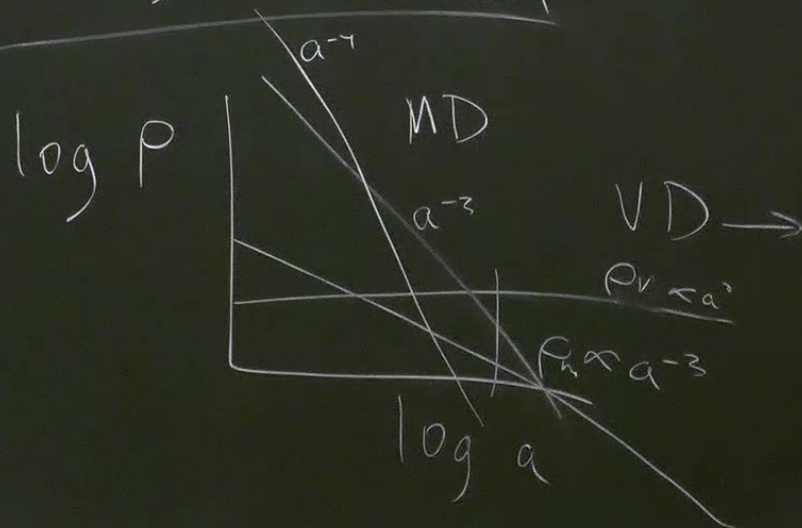 a⁻⁴
log ρ
MD
a⁻³
VD →
ρv ∝ a⁰
ρm ∝ a⁻³
log a